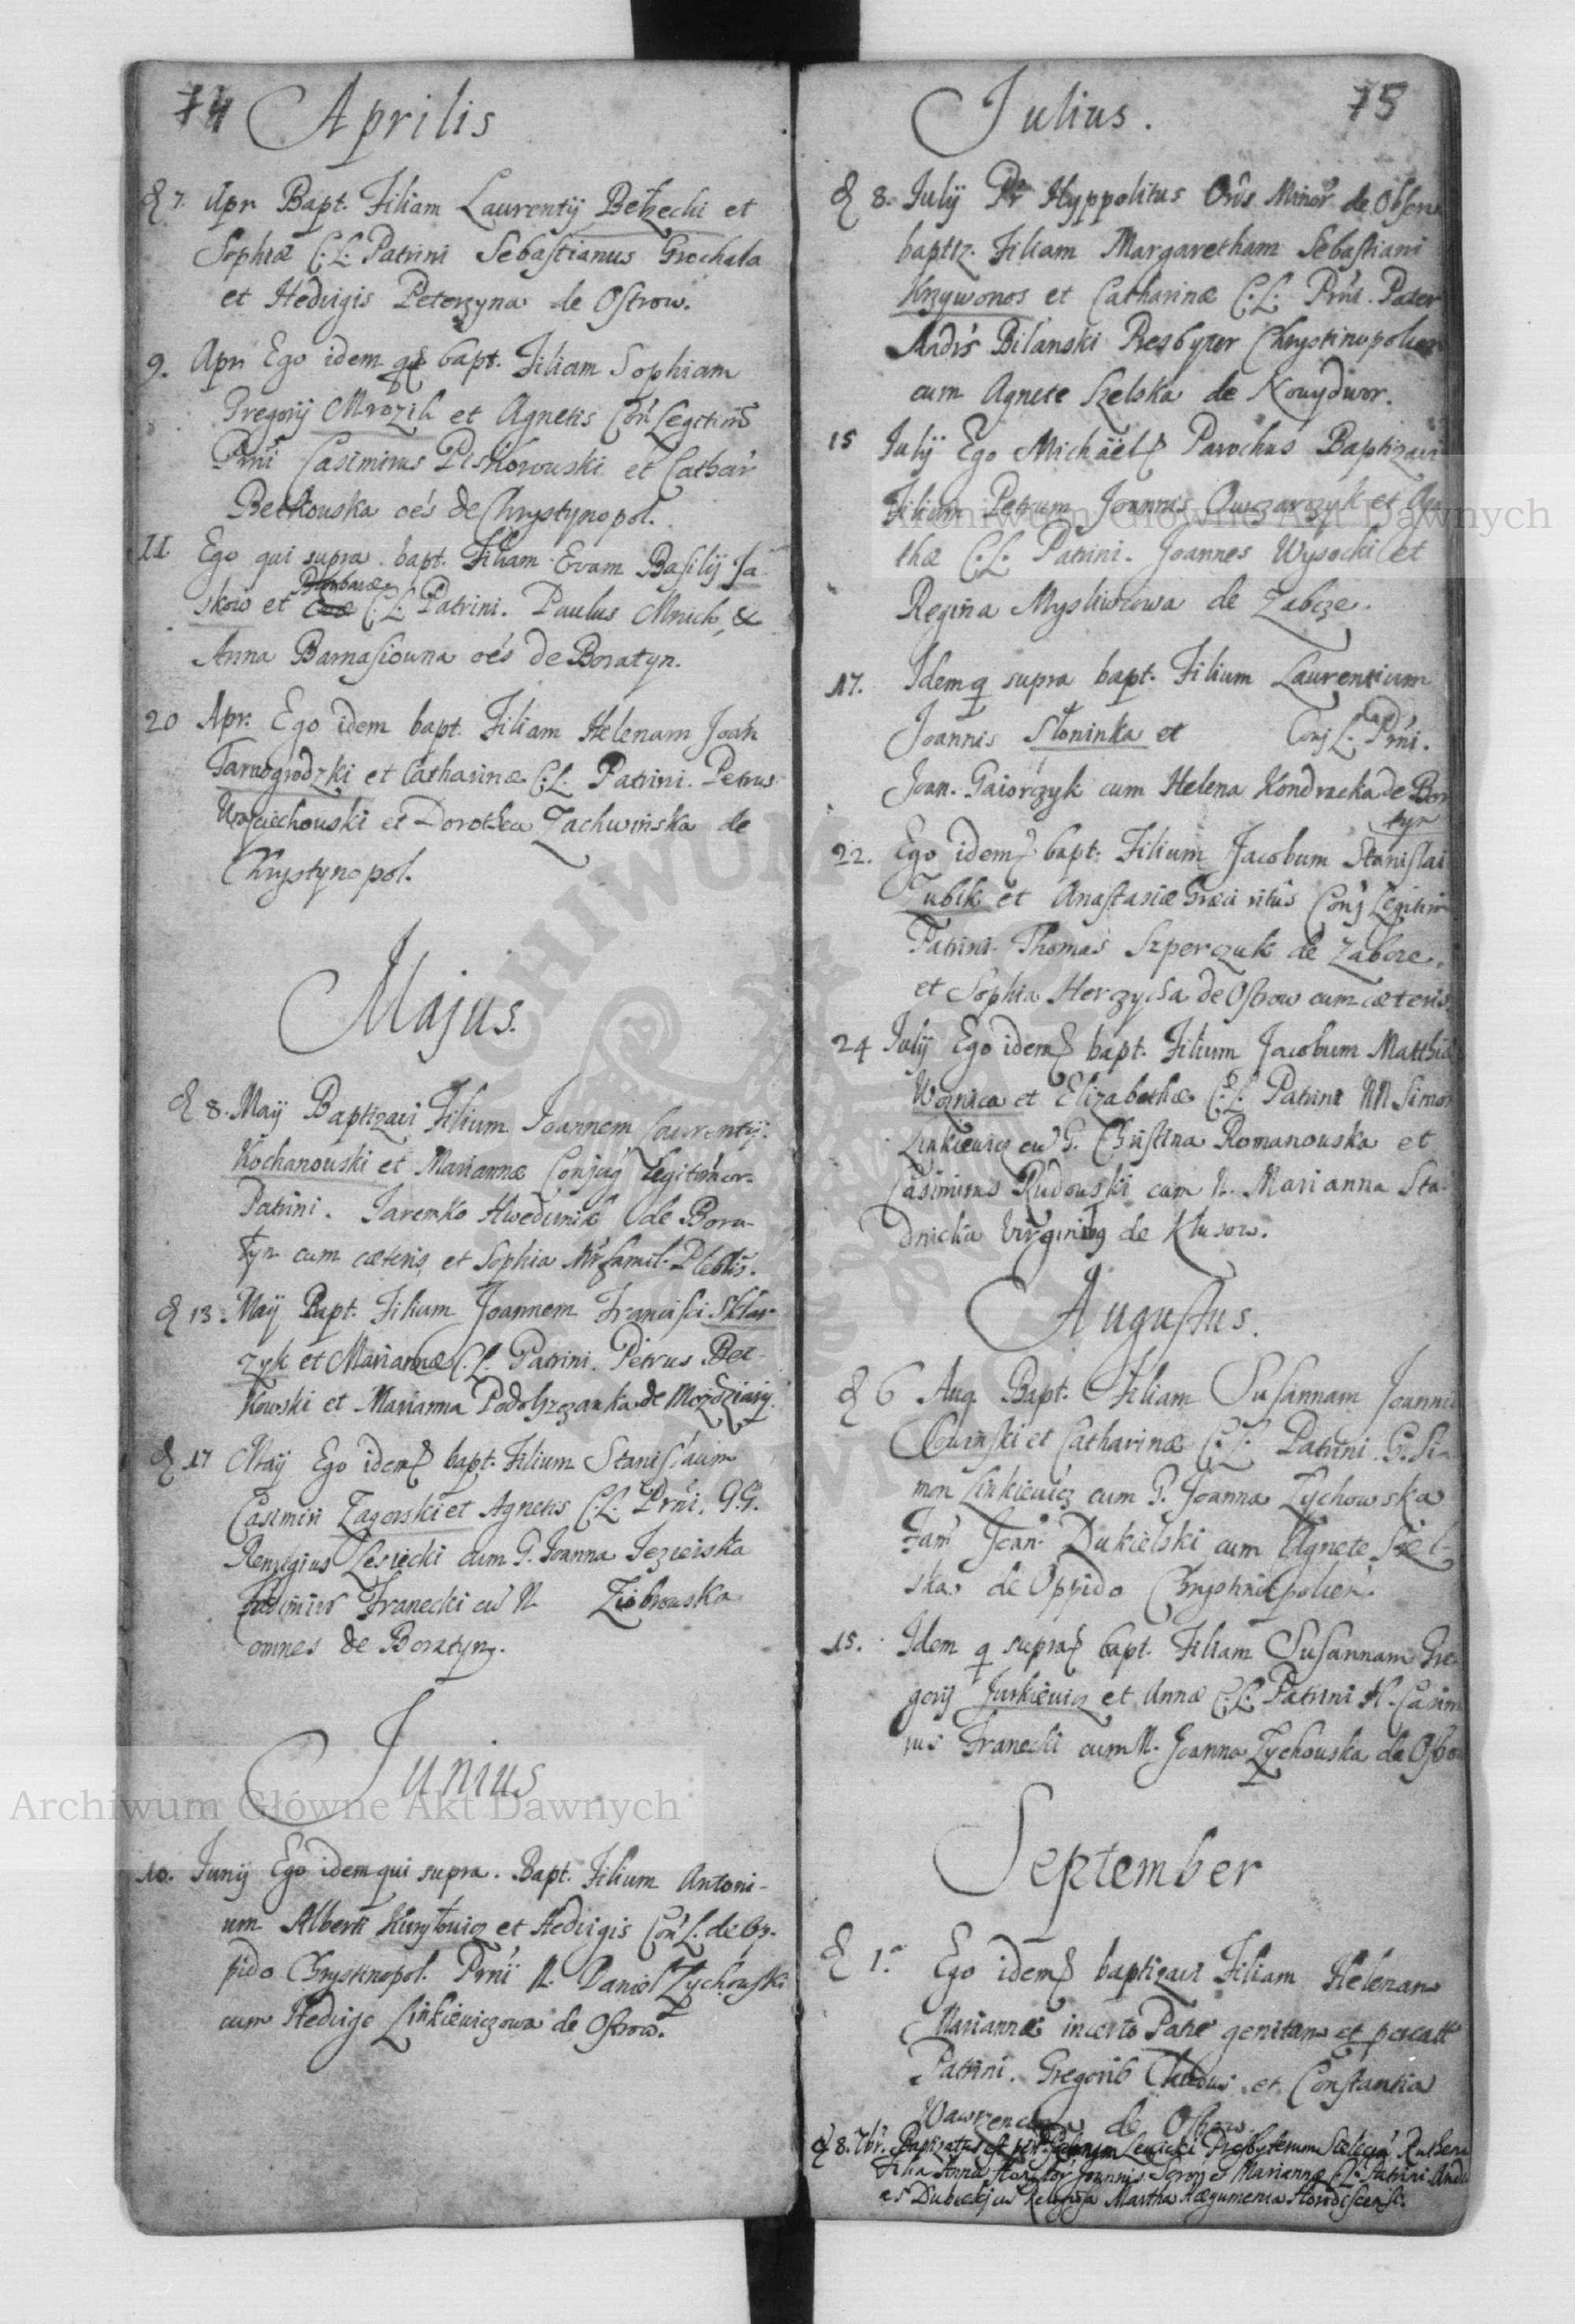 74 Aprilis
d 7. Apr Bapt. Filiam Laurentij Betzechi et
Sophiæ C.L. Patrini Sebastianus Grochala
et Hedvigis Peterzyna de Ostrow.
9. Apr Ego idem bapt. Filiam Sophiam
Gregorij Mrozik et Agnetis Con Legitim
Prni Casimirus Piskorowski et Cathar
Betkouska oes de Chrystynopol.
11 Ego qui supra bapt. Filiam Evam Basilij Ja-
Barbaræ
skow et C.L. Patrini. Paulus Mnich, &
Anna Barnasiouna oes de Boratyn.
20 Apr. Ego idem bapt. Filiam Helenam Joan
Tarnogrodzki et Catharinæ C.L. Patrini. Petrus
Woyciechouski et Dorothea Zachwinska de
Chrystynopol.
Majus.
d 8. Maij Baptizavi Filium Joannem Laurentij
Kochanouski et Mariannæ Conjug legitimor.
Patrini. Jaremko de Bora-
tyn cum cæteris et Sophia famil.
d 13. Maij Bapt. Filium Joannem Francisci Sklar-
zyk et Mariannæ C.L. Patrini. Petrus Bet-
kowski et Marianna de
d 17 Maij Ego idem bapt. Filium Stanislaum
Casimiri Zagorski et Agnetis C.L. Prni. G.G.
Remigius Lesiecki cum G. Joanna Jezierska
Franecki cu N Ziobrouska
omnes de Boratyn.
Junius
10. Junij Ego idem qui supra. Bapt. Filium Antoni-
um Alberti Kurylowicz et Hedvigis Con L. de Op-
pido Chrystinopol. Prni N. Daniel Zychouski
cum Hedvige Linkiewiczowa de Ostrow.
Julius. 75
d 8. Julij Pr Hyppolitus Ords Minor de Obser
baptiz. Filiam Margaretham Sebastiani
Krzywonos et Catharinæ C.L. Prni. Pater
Bilanski Presbyter Chrystinopolien
cum Agnete Szelska de Nowydwor.
15 Julij Ego Michael Parochus Baptizavi
Filium Petrum Joannis Owczarzyk et Aga
thæ C.L. Patrini. Joannes Wysocki et
Regina Mysliwcowa de Zabcze.
17. Idem q supra bapt. Filium Laurentium
Joannis Słoninka et Conj L. Prni.
Joan. Gaiorczyk cum Helena Kondracka de Bor
tyn
22. Ego idem bapt. Filium Jacobum Stanislai
Zubik et Anastasiæ Græci ritus Conj Legitim
Patrini. Thomas Szperczuk de Zabcze,
et Sophia Herzycsa de Ostrow cum cæteris
24 Julij Ego idem bapt. Filium Jacobum Matthiæ
Woznica et Elizabethæ C.L. Patrini NN Simon
Linkiewicz cu G. Christina Romanouska et
Casimirus Rudouski cum N. Marianna Sta-
dnicka Virginibg de Klusow.
Augustus.
d 6 Aug. Bapt. Filiam Susannam Joannis
et Catharinæ C.L. Patrini G. Si-
mon Linkiewicz cum G. Joanna Zychowska
Fam Joan Dukielski cum Agnete Siel-
ska de Oppido Chrystinopolien.
15. Idem q supra bapt. Filiam Susannam Gre-
gorij Jurkiewicz et Annæ C.L. Patrini N. Casim
rus Franecki cum N. Joanna Zychouska de Ostrow
September
d 1. Ego idem baptizavi Filiam Helenam
Mariannæ incerto Patre genitam et
Patrini. Gregorius et Constantia
de Ostrow
d 8. 7br. Baptizatus est per Lewicki Presbyterum Ruthen
Filia Anna Joannis et Mariannæ C.L. Patrini And
Religiosa Martha Hegumenia
Archiwum Główne Akt Dawnych
Archiwum Główne Akt Dawnych